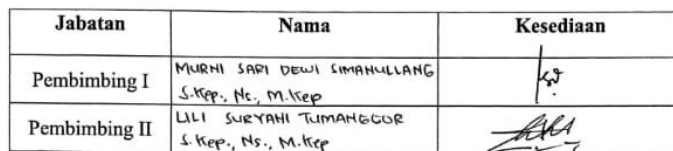 Jabatan Nama Kesediaan
Pembimbing I MURNI SARI DEWI SIMANULLANG
S.Kep., Ns., M.Kep
Pembimbing II LILI SURYANI TUMANGGOR
S.Kep., Ns., M.Kep